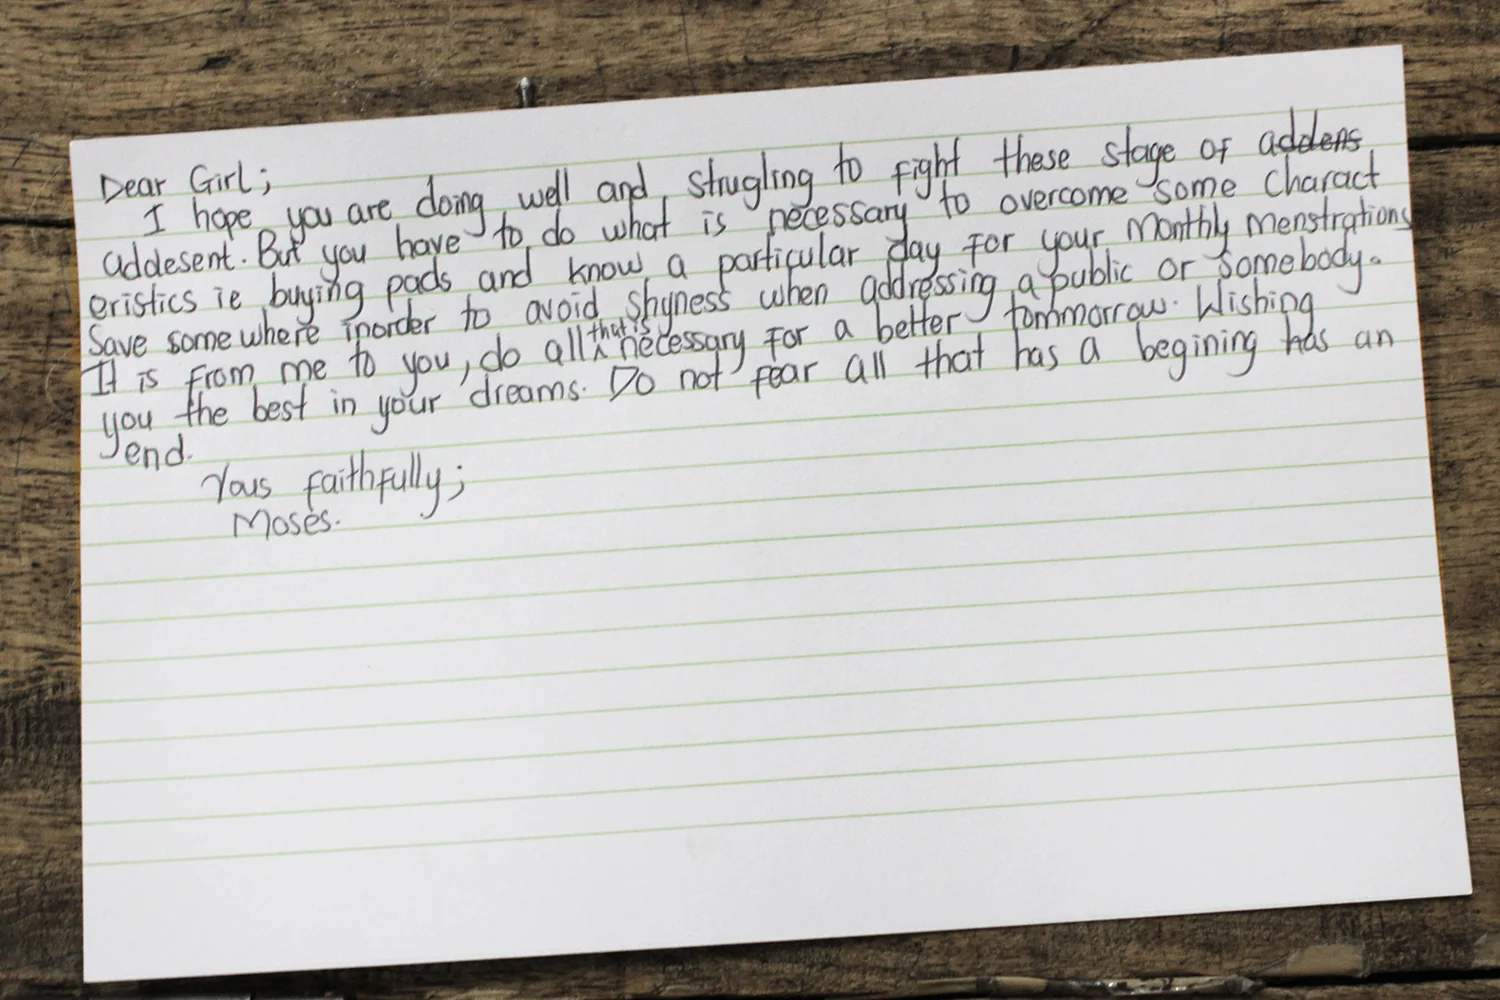 Dear Girl;
I hope you are doing well and strugling to fight these stage of addens
addesent. But you have to do what is necessary to overcome some charact
eristics ie buying pads and know a particular day for your Monthly menstrations
Save somewhere inorder to avoid shyness when addressing a public or somebody.
It is from me to you, do all that is necessary for a better tommorrow. Wishing
you the best in your dreams. Do not fear all that has a begining has an
end.
Yous faithfully;
Moses.